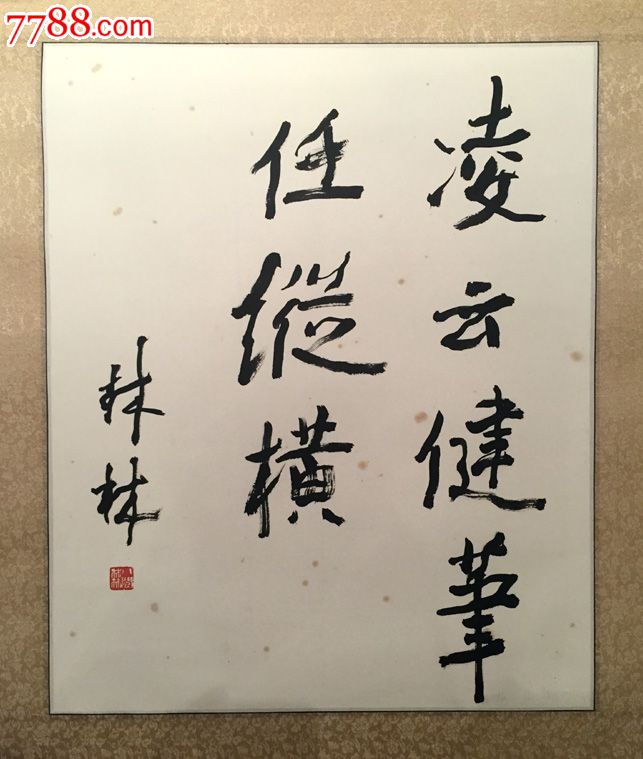 7788.com
凌云健筆
任縱橫
林林